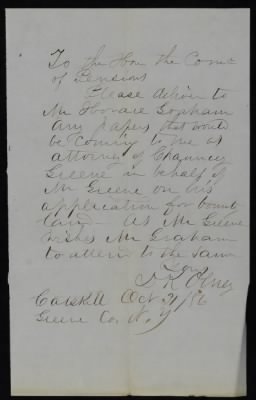 To the Hon the Comr
of Pensions
Please deliver to
Mr Horace Graham
any papers that would
be coming to me as
attorney of Chauncey
Greene in behalf of
Mr Greene on his
application for bount
land – As Mr Greene
wishes Mr Graham
to attend to the same
Yours
Olney
Catskill Oct 31/56
Greene Co. N. Y